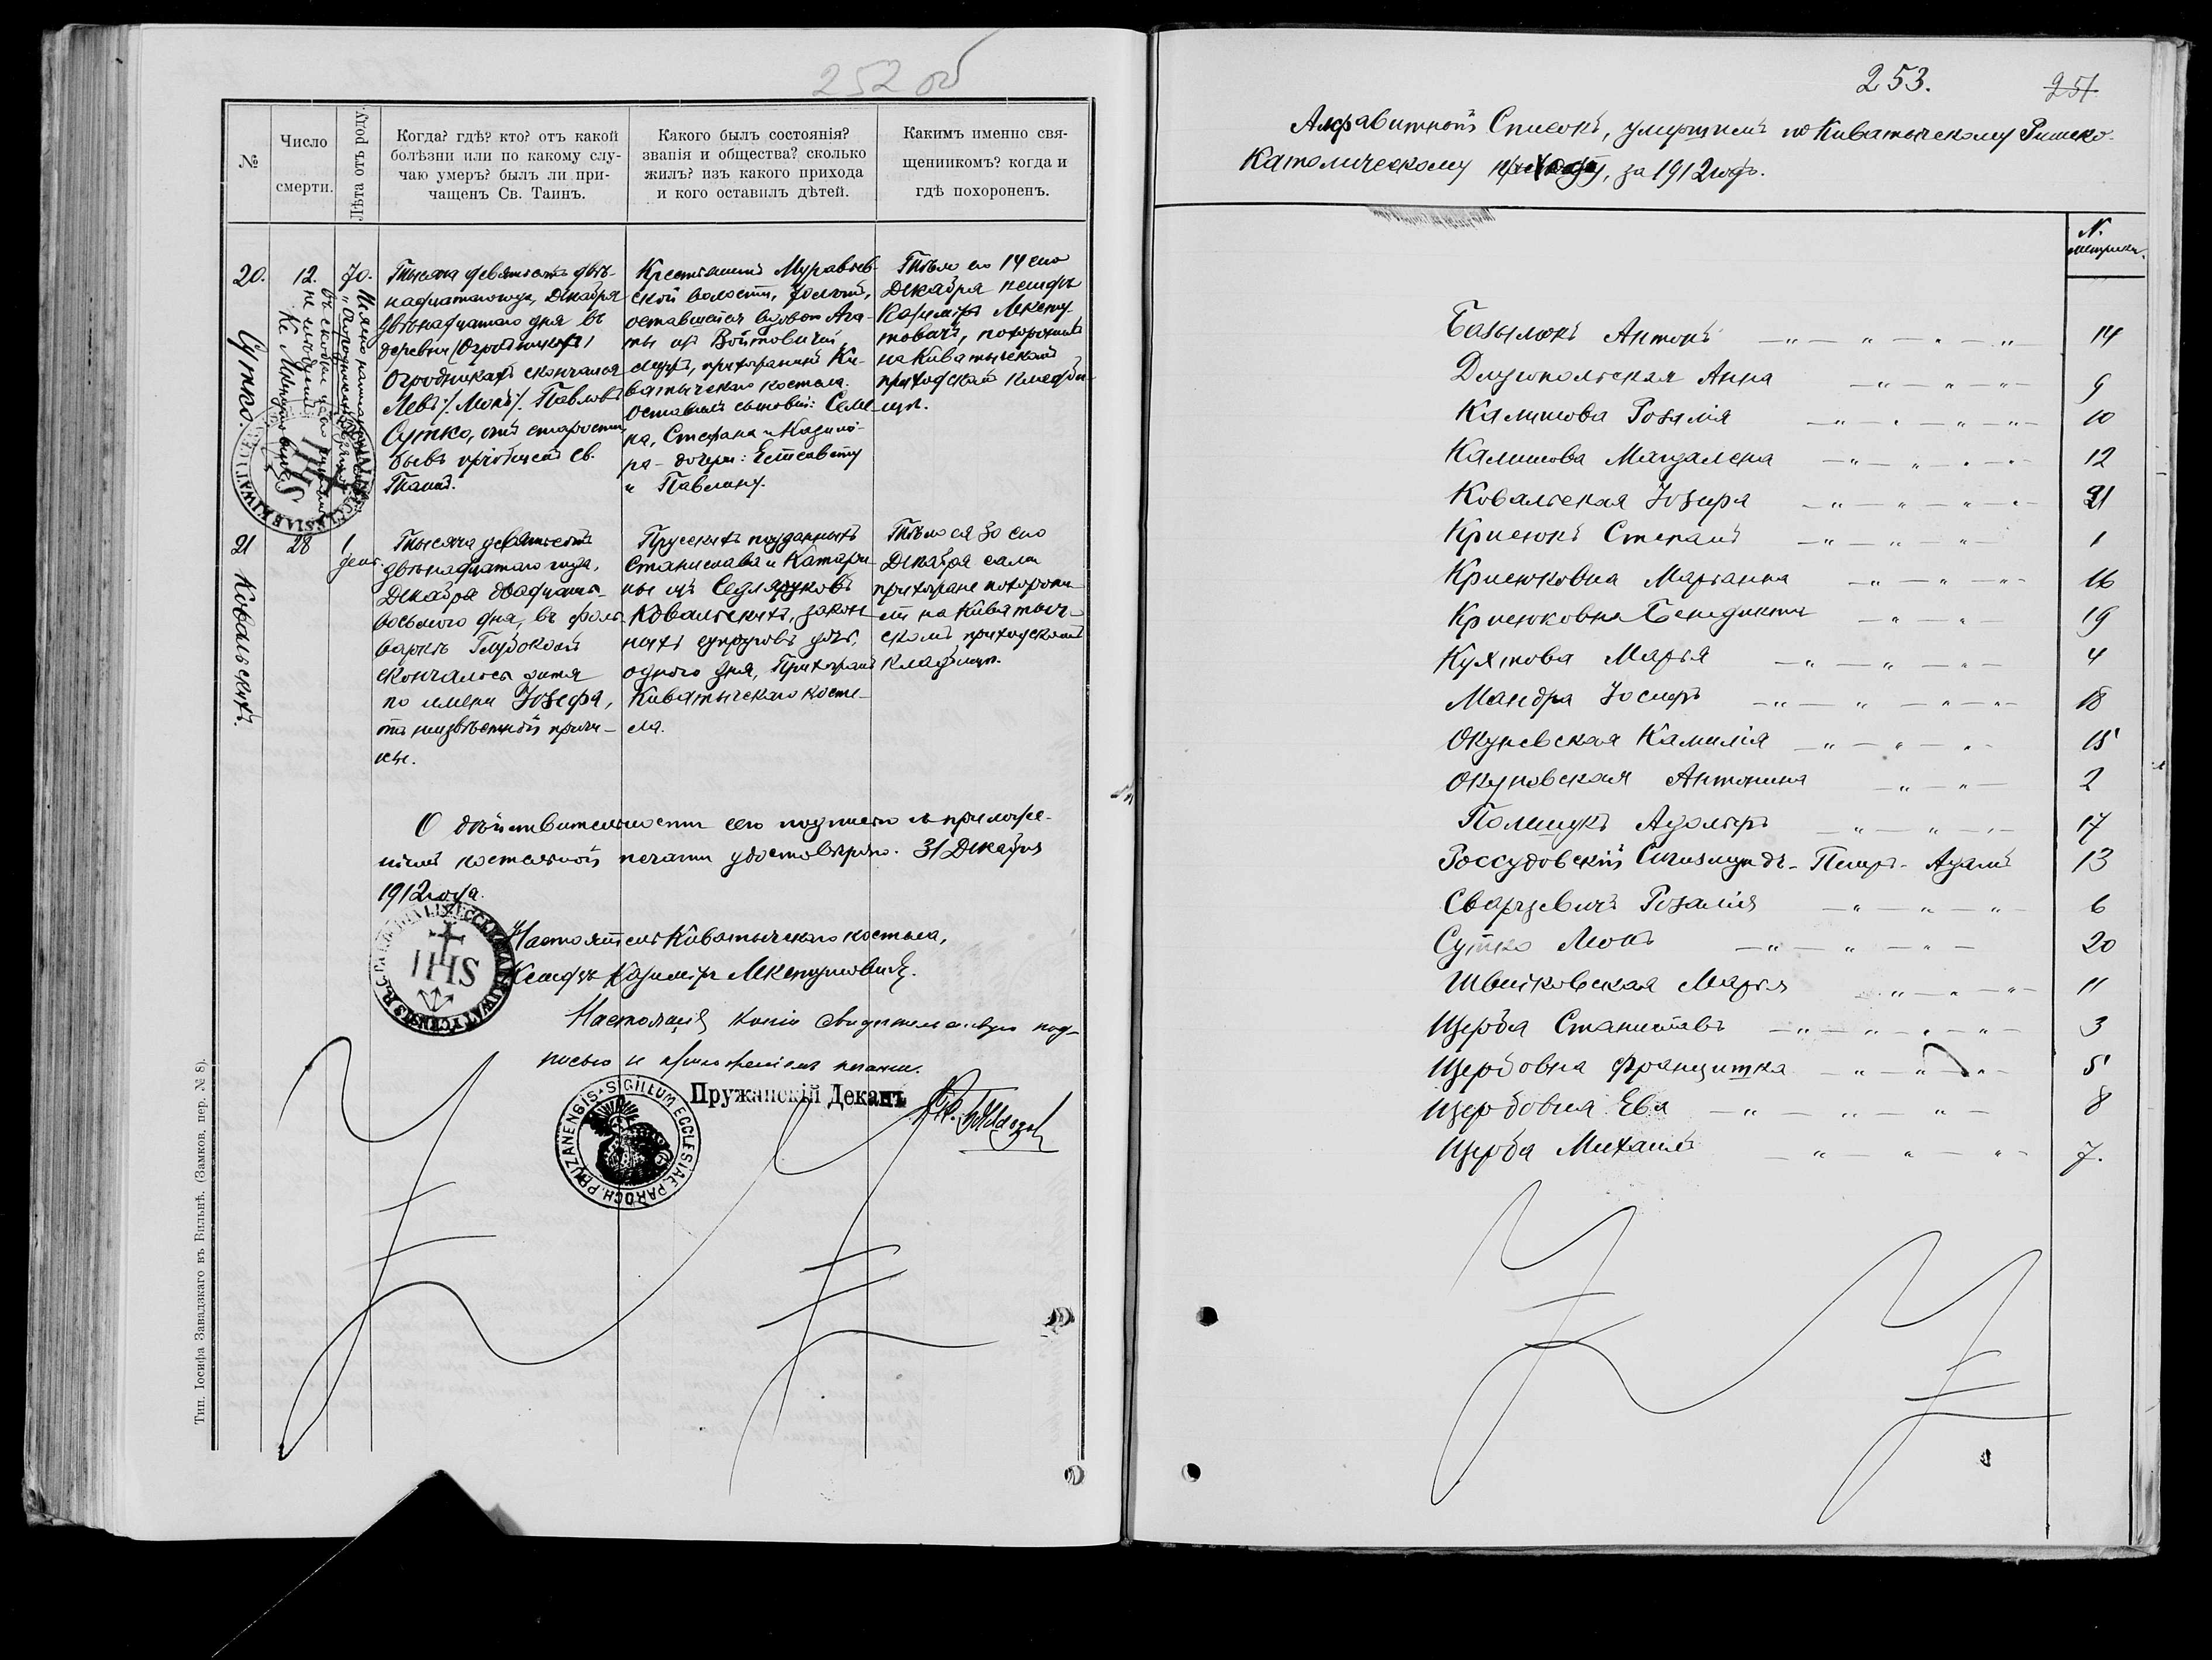 252 об
№
Число
смерти.
Лѣта отъ роду.
Когда? гдѣ? кто? отъ какой
болѣзни или по какому слу-
чаю умеръ? былъ ли при-
чащенъ Св. Таинъ.
Какого былъ состоянія?
званія и общества? сколько
жилъ? изъ какого прихода
и кого оставилъ дѣтей.
Какимъ именно свя-
щенникомъ? когда и
гдѣ похороненъ.
20.
Сутко.
12.
70.
Тысяча девятьсотъ двѣ-
надцатаго года, Декабря
двѣнадцатаго дня въ
деревни (Огродникахъ)
Огродникахъ скончался
Левъ /: Монъ :/ Павловъ
Сутко, отъ старости,
бывъ пріобщенъ Св.
Таинъ.
Крестьянинъ Муравьев-
ской волости, 70 лѣтъ,
оставшейся вдовой Ага-
ты изъ Войтовичей
мужъ, прихожанинъ Ки-
ватыческаго костела.
Оставилъ сыновей: Семе-
на, Стефана и Казимі-
ра - дочери: Елисавету
и Павлину.
Тѣло его 14 сего
Декабря ксендзъ
Казиміръ Мкекту-
товичъ, похоронилъ
на Киватыческомъ
приходскомъ кладби-
щѣ.
21
Ковальскихъ.
28
1
день.
Тысяча девятьсотъ
двѣнадцатаго года,
Декабря двадцать-
восьмого дня, въ фоль-
варкѣ Глубокомъ
скончалось дитя
по имени Юзефа,
отъ неизвѣстной причи-
ны.
Прусскихъ подданныхъ
Станислава и Катари-
ны изъ Седляруковъ
Ковальскихъ, закон-
ныхъ супруговъ дочь,
одного дня, Прихожанъ
Киватыческаго косте-
ла.
Тѣло ея 30 сего
Декабря сами
прихожане похорони-
ли на Киватыче-
скомъ приходскомъ
кладбищѣ.
О дѣйствительности сего подписью и приложе-
ніемъ костельной печати удостовѣряю. 31 Декабря
1912 года.
Настоятель Киватыческаго костела,
Ксендзъ Казиміръ
Настоящую копію свидѣтельствую под-
писью и приложеніемъ печати.
Пружанскій Деканъ
IHS
SIGILLUM ECCLESIAE PAROCH. PRUZANENSIS
Тип. Іосифа Завадзкаго въ Вильнѣ. (Замков. пер. № 8).
253.
251
Алфавитный Списокъ, умершимъ по Киватыческому Римско-
Католическому приходу, за 1912 годъ.
№
метрики.
Базылюкъ Антонъ — " — " — " — " 14
Длугопольская Анна — " — " — " 9
Калишова Розалія — " — " — " — " 10
Калишова Магдалена — " — " — " — " 12
Ковальская Юзефа — " — " — " — " 21
Крисюкъ Степанъ — " — " — " — " 1
Крисюковна Марьянна — " — " — " 16
Крисюковна Бенедикта — " — " 19
Кухтова Марья — " — " — " — 4
Мандра Іосифъ — " — " — " — " 18
Окуневская Камилія — " — " — " 15
Окуновская Антонина — " — " 2
Полищукъ Адольфъ — " — " — " 17
Россудовскій Сигизмундъ-Петръ-Адамъ 13
Сварцевичъ Розалія — " — " — " 6
Сутко Монъ — " — " — " — 20
Швейковская Марья — " — " — " 11
Щерба Станиславъ — " — " — " — " 3
Щербовна Францишка — " — " — " 5
Щербовна Ева — " — " — " — 8
Щерба Михаилъ — " — " — " 7.